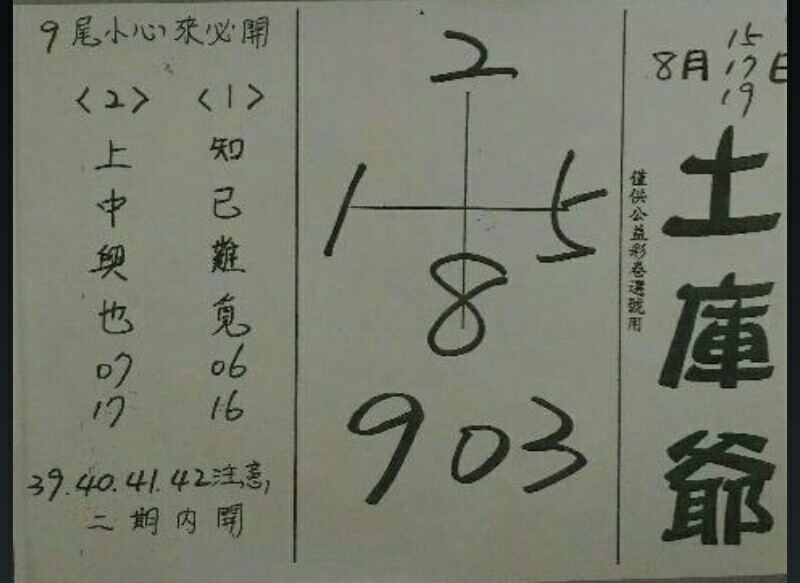 8月 15 17 19 日
土庫爺
僅供公益彩卷選號用
2
1 5
8
903
9尾小心來必開
〈1〉
知己難覓
06
16
〈2〉
上中興也
07
17
39.40.41.42注意,
二期內開